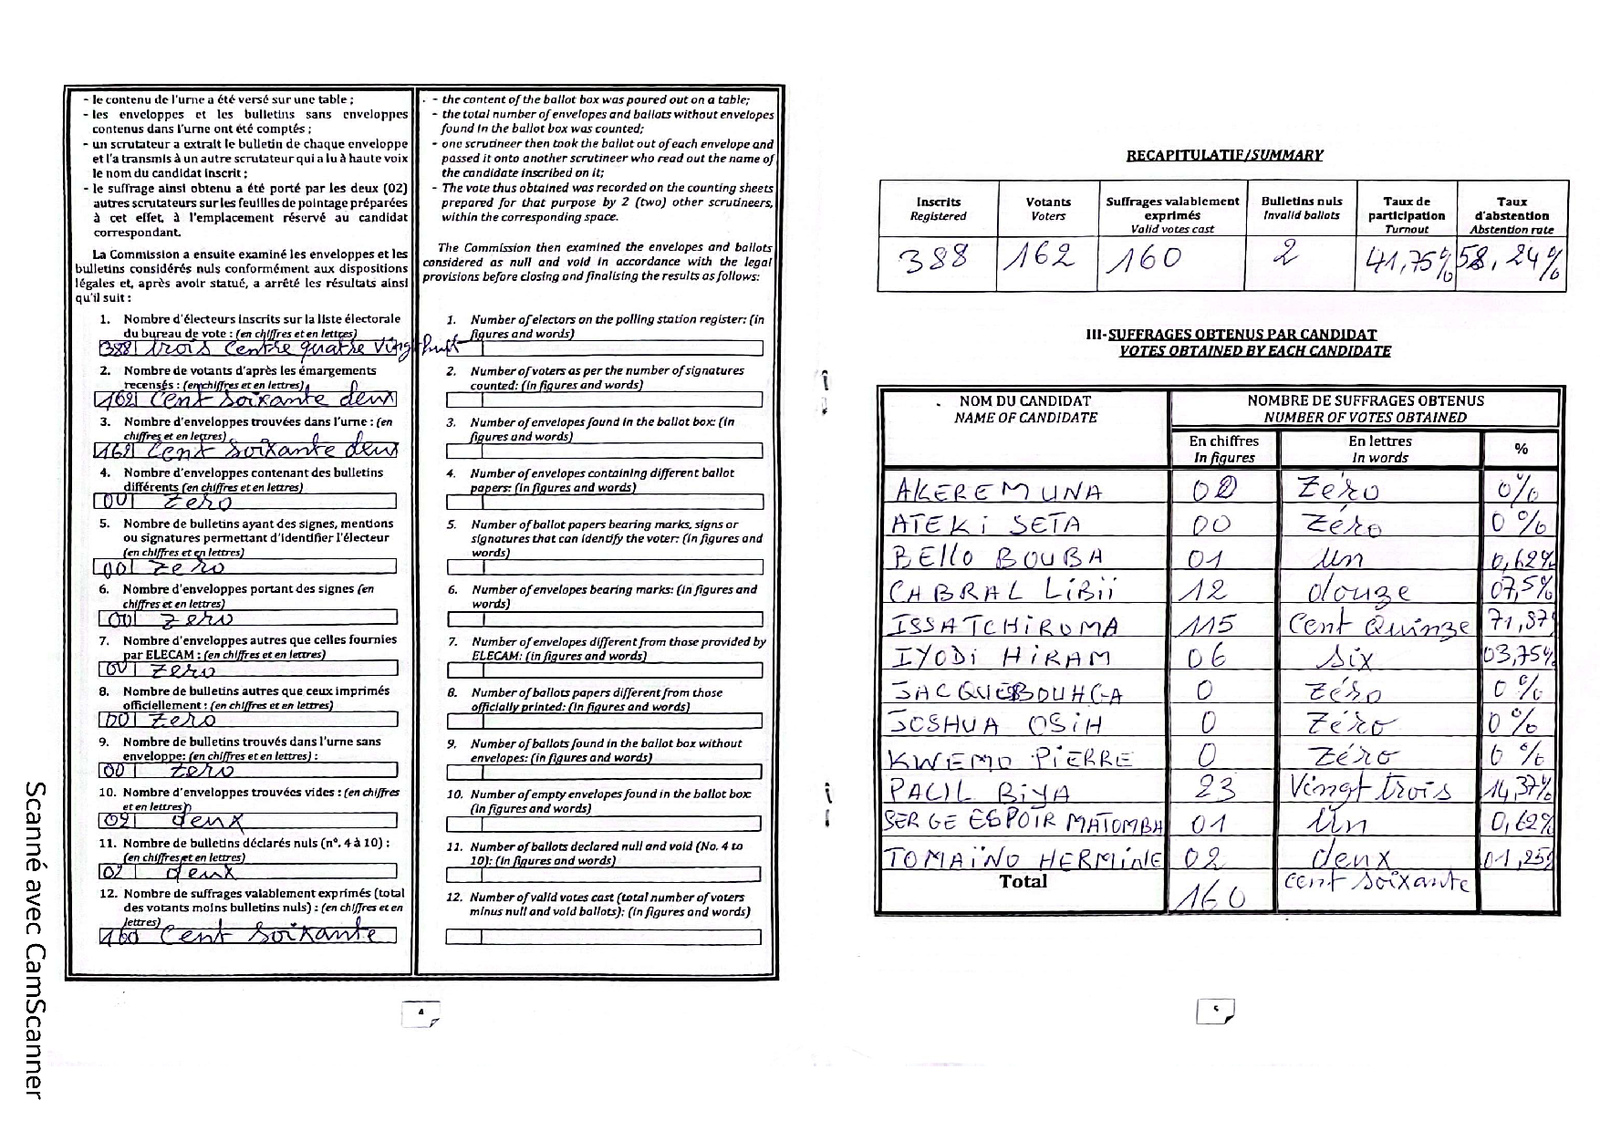 - le contenu de l'urne a été versé sur une table ;
- les enveloppes et les bulletins sans enveloppes
contenus dans l'urne ont été comptés ;
- un scrutateur a extrait le bulletin de chaque enveloppe
et l'a transmis à un autre scrutateur qui a lu à haute voix
le nom du candidat inscrit ;
- le suffrage ainsi obtenu a été porté par les deux (02)
autres scrutateurs sur les feuilles de pointage préparées
à cet effet, à l'emplacement réservé au candidat
correspondant.
La Commission a ensuite examiné les enveloppes et les
bulletins considérés nuls conformément aux dispositions
légales et, après avoir statué, a arrêté les résultats ainsi
qu'il suit :
1. Nombre d'électeurs inscrits sur la liste électorale
du bureau de vote : (en chiffres et en lettres)
388 trois centre quatre vingt huit
2. Nombre de votants d'après les émargements
recensés : (en chiffres et en lettres)
162 Cent soixante deux
3. Nombre d'enveloppes trouvées dans l'urne : (en
chiffres et en lettres)
162 Cent soixante deux
4. Nombre d'enveloppes contenant des bulletins
différents (en chiffres et en lettres)
00 zero
5. Nombre de bulletins ayant des signes, mentions
ou signatures permettant d'identifier l'électeur
(en chiffres et en lettres)
00 zero
6. Nombre d'enveloppes portant des signes (en
chiffres et en lettres)
00 zero
7. Nombre d'enveloppes autres que celles fournies
par ELECAM : (en chiffres et en lettres)
00 zero
8. Nombre de bulletins autres que ceux imprimés
officiellement : (en chiffres et en lettres)
00 zero
9. Nombre de bulletins trouvés dans l'urne sans
enveloppe: (en chiffres et en lettres) :
00 zero
10. Nombre d'enveloppes trouvées vides : (en chiffres
et en lettres)
02 deux
11. Nombre de bulletins déclarés nuls (n°. 4 à 10) :
(en chiffres et en lettres)
02 deux
12. Nombre de suffrages valablement exprimés (total
des votants moins bulletins nuls) : (en chiffres et en
lettres)
160 Cent Soixante
- the content of the ballot box was poured out on a table;
- the total number of envelopes and ballots without envelopes
found in the ballot box was counted;
- one scrutineer then took the ballot out of each envelope and
passed it onto another scrutineer who read out the name of
the candidate inscribed on it;
- The vote thus obtained was recorded on the counting sheets
prepared for that purpose by 2 (two) other scrutineers,
within the corresponding space.
The Commission then examined the envelopes and ballots
considered as null and void in accordance with the legal
provisions before closing and finalising the results as follows:
1. Number of electors on the polling station register: (in
figures and words)
2. Number of voters as per the number of signatures
counted: (in figures and words)
3. Number of envelopes found in the ballot box: (in
figures and words)
4. Number of envelopes containing different ballot
papers: (in figures and words)
5. Number of ballot papers bearing marks, signs or
signatures that can identify the voter: (in figures and
words)
6. Number of envelopes bearing marks: (in figures and
words)
7. Number of envelopes different from those provided by
ELECAM: (in figures and words)
8. Number of ballots papers different from those
officially printed: (in figures and words)
9. Number of ballots found in the ballot box without
envelopes: (in figures and words)
10. Number of empty envelopes found in the ballot box:
(in figures and words)
11. Number of ballots declared null and void (No. 4 to
10): (in figures and words)
12. Number of valid votes cast (total number of voters
minus null and void ballots): (in figures and words)
4
RECAPITULATIF/SUMMARY
Inscrits Registered | Votants Voters | Suffrages valablement exprimés Valid votes cast | Bulletins nuls Invalid ballots | Taux de participation Turnout | Taux d'abstention Abstention rate
388 162 160 2 41,75% 58,24%
III-SUFFRAGES OBTENUS PAR CANDIDAT
VOTES OBTAINED BY EACH CANDIDATE
NOM DU CANDIDAT NOMBRE DE SUFFRAGES OBTENUS
NAME OF CANDIDATE NUMBER OF VOTES OBTAINED
En chiffres En lettres %
In figures In words
AKEREMUNA 00 Zéro 0%
ATEKI SETA 00 Zéro 0%
BEllO BOUBA 01 Un 0,62%
CABRAL LiBii 12 douze 07,5%
ISSA TCHIROMA 115 Cent Quinze 71,87
IYODI HIRAM 06 six 03,75%
JACQUE BOUHGA 0 Zéro 0%
JOSHUA OSIH 0 Zéro 0%
KWEMO PIERRE 0 Zéro 0%
PAUL BIYA 23 Vingt trois 14,37%
SERGE ESPOIR MATOMBA 01 Un 0,62%
TOMAINO HERMINE 02 deux 01,25%
Total 160 cent soixante
5
Scanné avec CamScanner